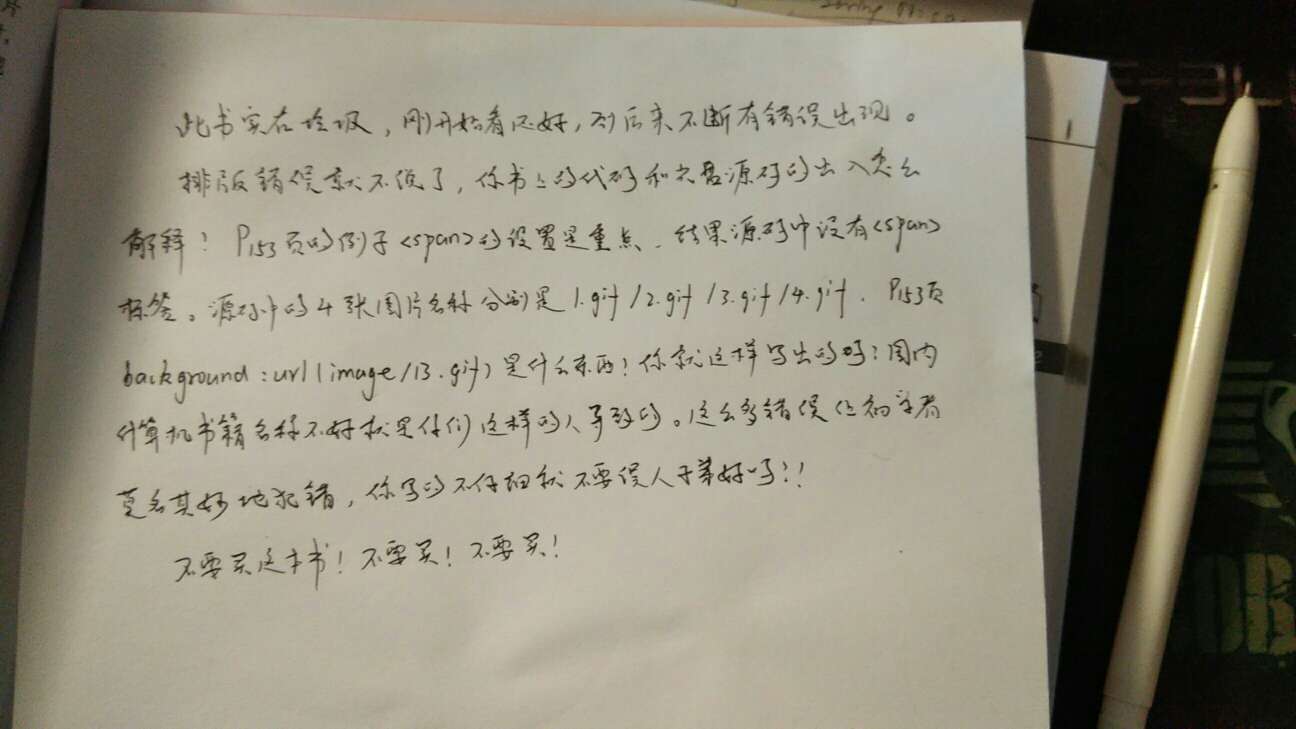 此书实在垃圾，刚开始看还好，到后来不断有错误出现。
排版错误就不说了，你书上的代码和光盘源码的出入怎么
解释？P153页的例子<span>的设置是重点，结果源码中没有<span>
标签。源码中的4张图片名称分别是1.gif/2.gif/3.gif/4.gif．P153页
background:url(image/13.gif)是什么东西？你就这样写出的吗？国内
计算机书籍名称不好就是你们这样的人导致的。这么多错误让初学者
莫名其妙地犯错，你写的不仔细就不要误人子弟好吗？！
不要买这本书！不要买！不要买！
OB